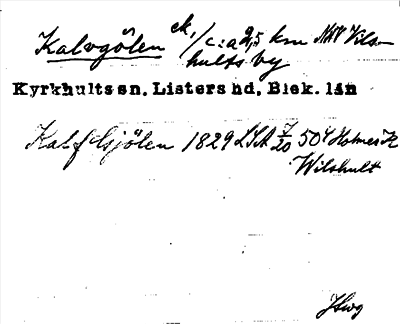 Kalvgölen ek. /c:a 2,5 km NNV Vils-
hults by
Kyrkhults sn. Listers hd, Blek. län
Kalfelsjölen 1829 LSA 7/20 504 Holmes K
Wilshult